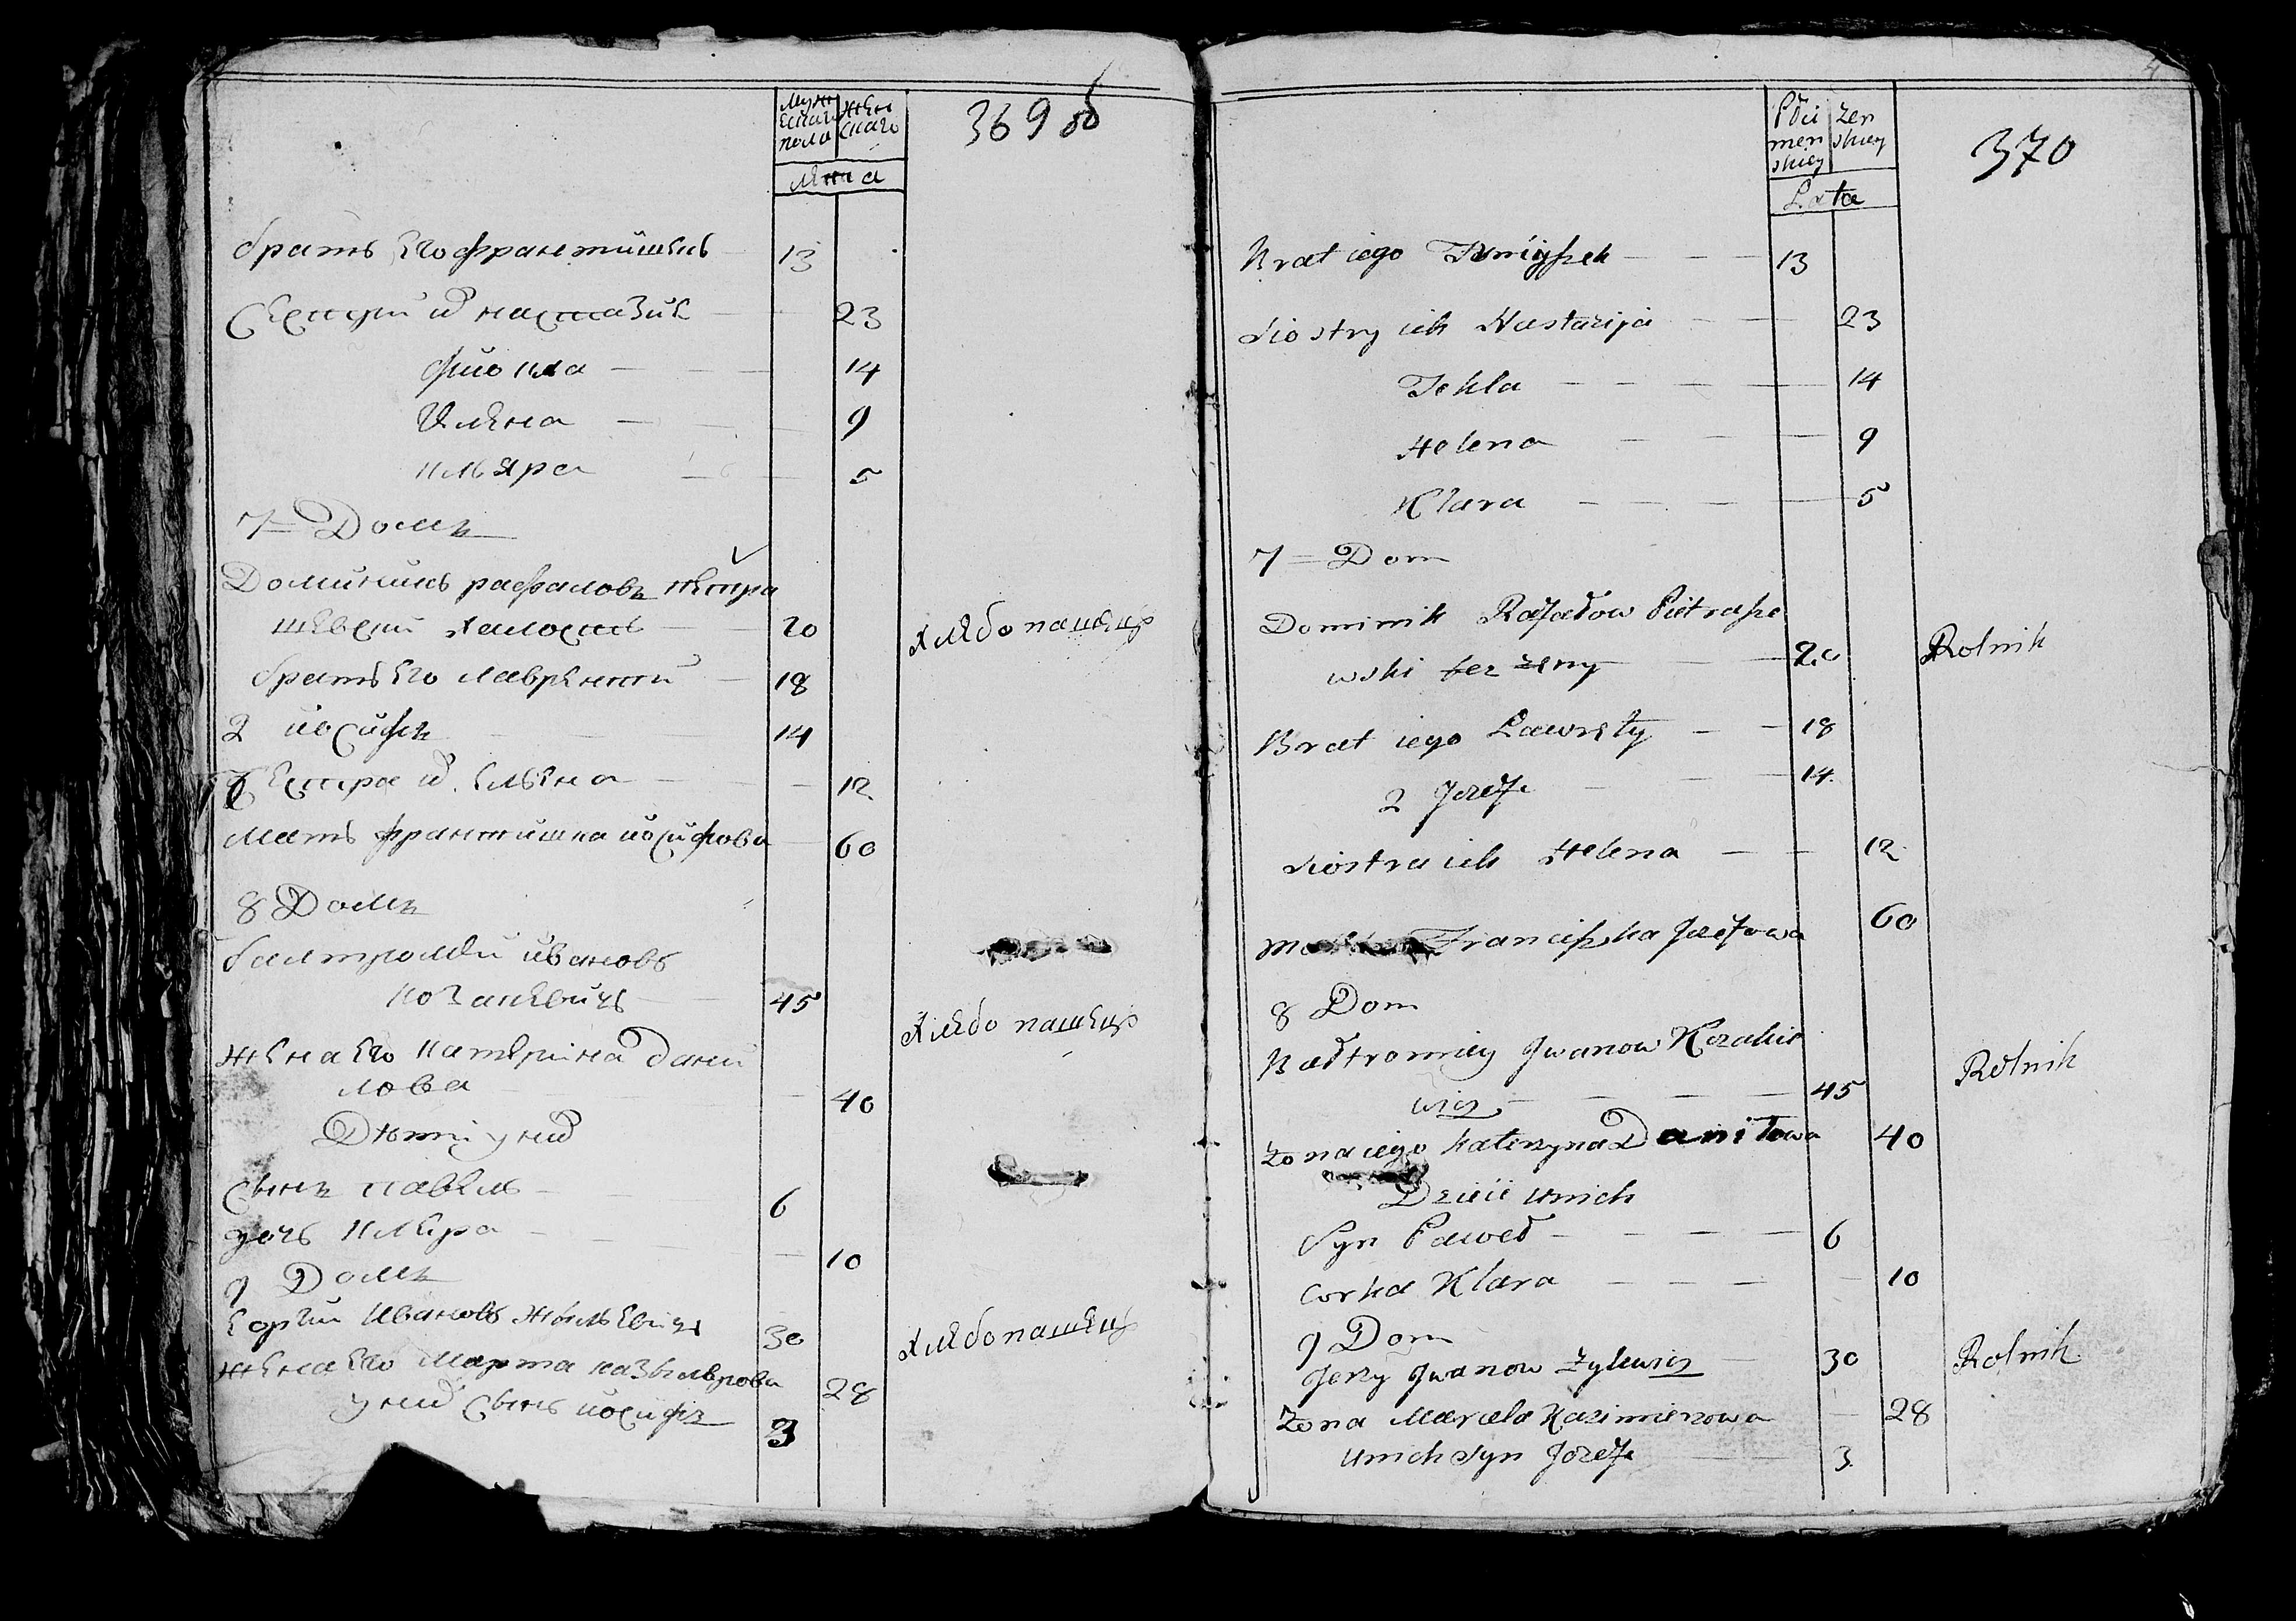 Муж
ескаго
пола
жен
скаго
лета
369 об
братъ Его франтишекъ 13
Сестры ихъ настазия 23
14
Илена 9
кляра 5
7 = Домъ
Доминикъ рафаловъ петра
шевски халостъ 20 хлебопашецъ
братъ Его лаврентий 18
2 иосифъ 14
Сестра ихъ Елена 12
мать франтишка иосифова 60
8 Домъ
балтромей ивановъ
козакевичъ 45 хлебопашецъ
жена Его катерина дани
лова 40
Дети у них
сынъ павелъ 6
дочь клара 10
9 Домъ
Ергий Ивановъ жылевичъ 30 хлебопашецъ
жена Его Марта казымерова 28
у них сынъ иосифъ 3
Płci
men
skiey
zen
skiey
Lata
370
Brat iego 13
Siostry ich Nastazija 23
Tekla 14
Helena 9
Klara 5
7 = Dom
Dominik Rafałow Pietrasze
wski bez żeny 20 Rolnik
Brat iego Ławręty 18
2 Jozef 14
Siostra ich Helena 12
Franciszka Jozefowa 60
8 Dom
Bałtromiey Jwanow Kozakie
wicz 45 Rolnik
Zona iego Katerzyna Daniłowa 40
Dzieci unich
Syn Paweł 6
corka Klara 10
9 Dom
Jerzy Jwanow Zylewicz 30 Rolnik
Zona Kazimierzowa 28
unich syn Jozef 3